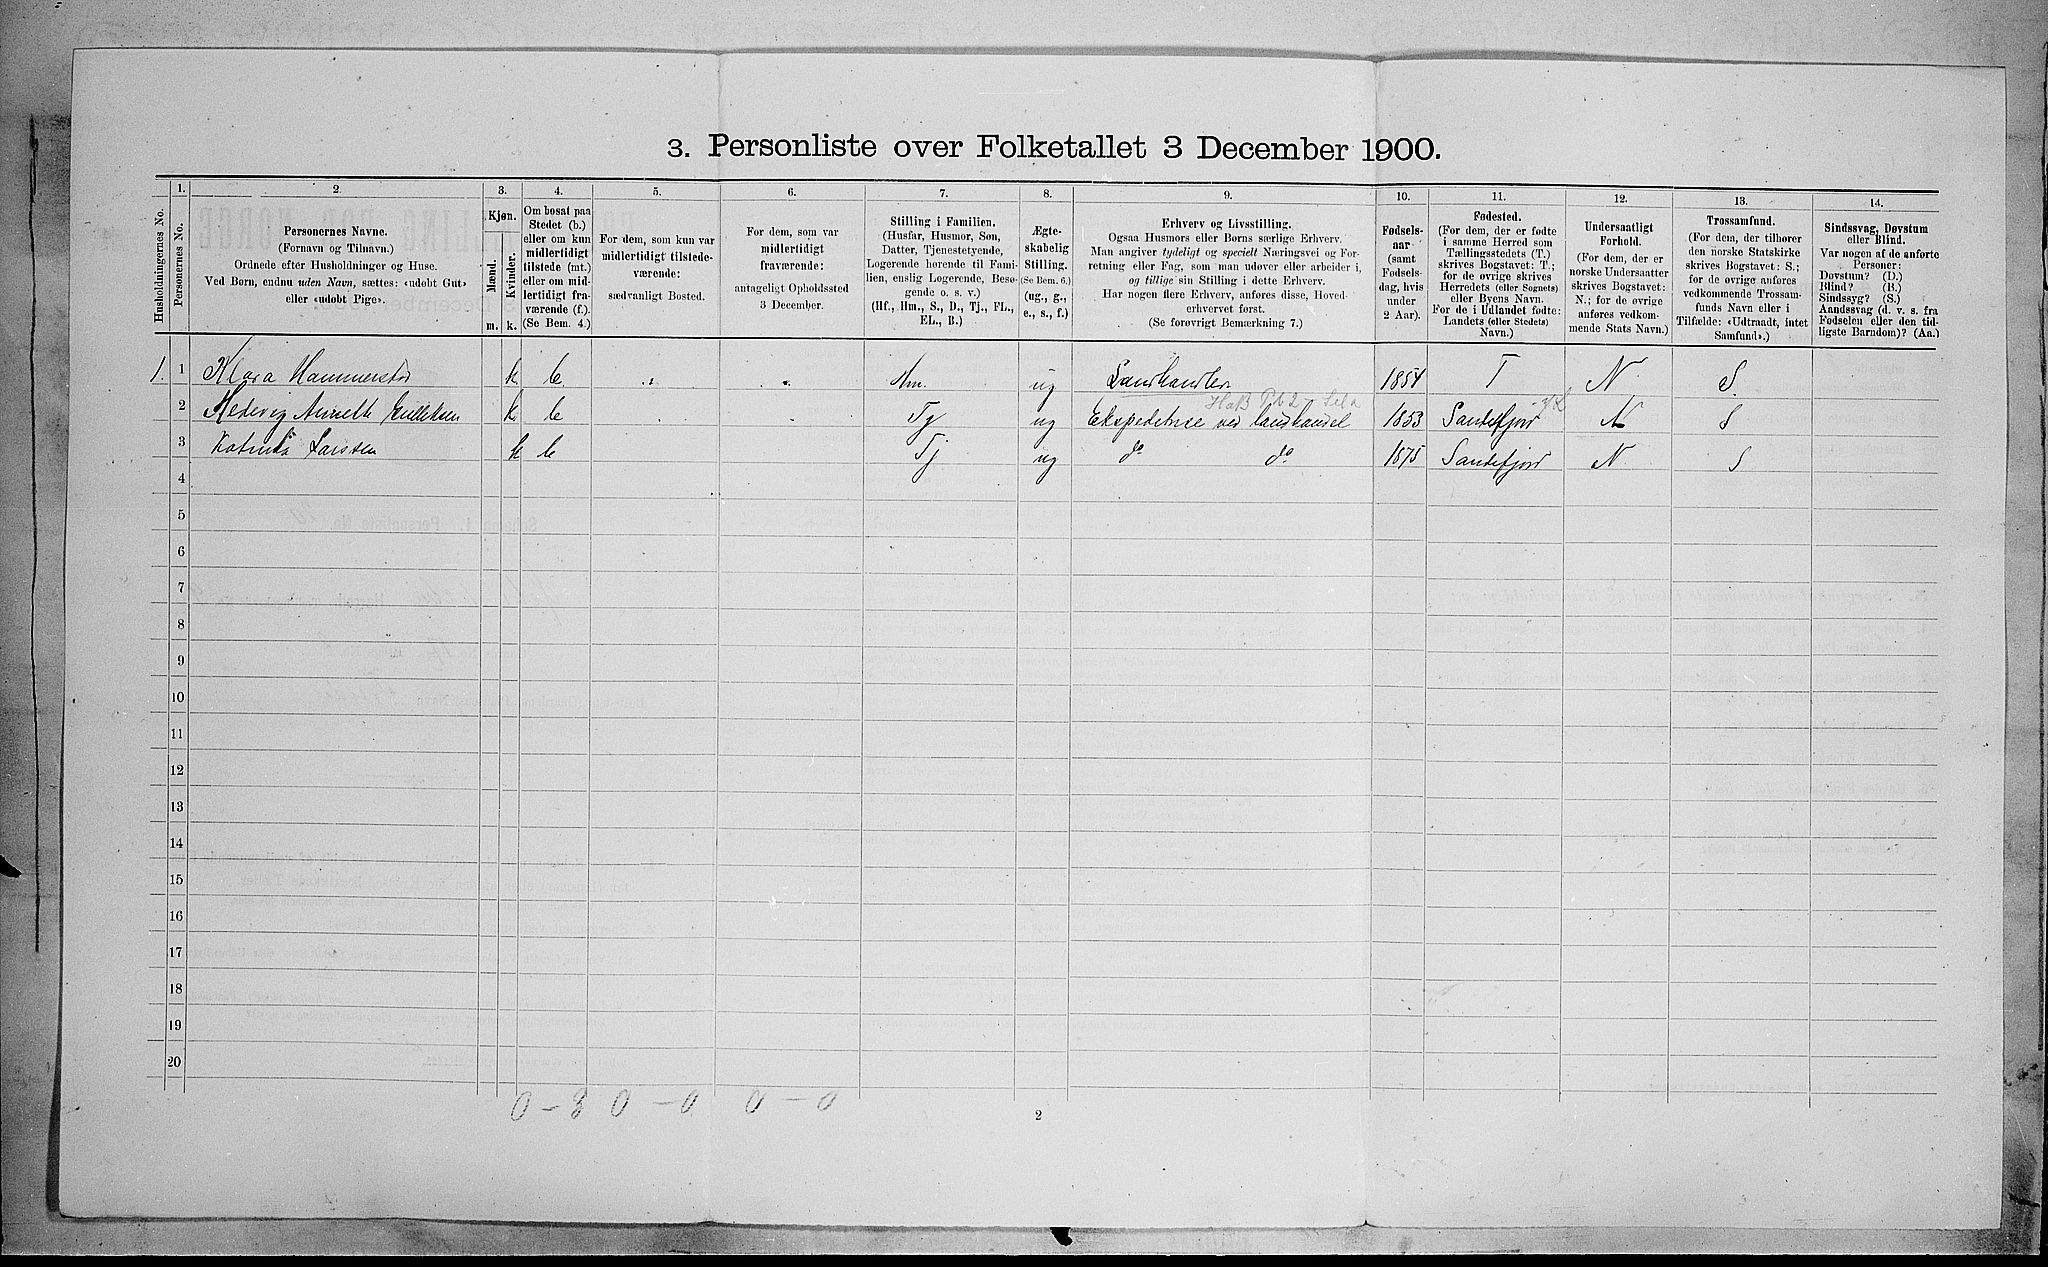 3. Personliste over Folketallet 3 December 1900.
Husholdningernes No.
1.
Personernes No.
2
Personernes Navne.
(Fornavn og Tilnavn.)
Ordnede efter Husholdninger og Huse.
Ved Børn, endnu uden Navn, sættes: «udøbt Gut»
eller «udøbt Pige».
3.
Kjøn.
Mænd.
Kvinder.
m.
k.
4.
Om bosat paa
Stedet (b.)
eller om kun
midlertidigt
tilstede (mt.)
eller om mid-
lertidigt fra-
værende (f.).
(Se Bem. 4.)
5.
For dem, som kun var
midlertidigt tilstede-
værende:
sædvanligt Bosted.
6.
For dem, som var
midlertidigt
fraværende:
antageligt Opholdssted
3 December.
7.
Stilling i Familien.
(Husfar, Husmor, Søn,
Datter, Tjenestetyende,
Logerende hørende til Fami-
lien, enslig Logerende, Besø-
gende o. s. v.)
(Hf., Hm., S., D., Tj., FL.,
EL., B.)
8.
Ægte-
skabelig
Stilling.
(Se Bem. 6.)
(ug., g.,
e., s., f.)
9.
Erhverv og Livsstilling.
Ogsaa Husmors eller Børns særlige Erhverv.
Man angiver tydeligt og specielt Næringsvei og For-
retning eller Fag, som man udøver eller arbeider i,
og tillige sin Stilling i dette Erhverv.
Har nogen flere Erhverv, anføres disse, Hoved-
erhvervet først.
(Se forøvrigt Bemærkning 7.)
10.
Fødsels-
aar
(samt
Fødsels-
dag, hvis
under
2 Aar).
11.
Fødested.
(For dem, der er fødte
i samme Herred som
Tællingsstedets (T.)
skrives Bogstavet: T.;
for de øvrige skrives
Herredets (eller Sognets)
eller Byens Navn.
For de i Udlandet fødte:
Landets (eller Stedets)
Navn.)
12.
Undersaatligt
Forhold.
(For dem, der er
norske Undersaatter
skrives Bogstavet:
N.; for de øvrige
anføres vedkom-
mende Stats Navn.)
13.
Trossamfund.
(For dem, der tilhører
den norske Statskirke
skrives Bogstavet: S.;
for de øvrige anføres
vedkommende Trossam-
funds Navn eller i
Tilfælde: «Udtraadt, intet
Samfund».)
14.
Sindssvag, Døvstum
eller Blind.
Var nogen af de anførte
Personer:
Døvstum? (D.)
Blind? (B.)
Sindssyg? (S.)
Aandssvag (d. v. s. fra
Fødselen eller den tid-
ligste Barndom)? (Aa.)
1. 1 Klara Hammerstad k b Hm. ug Landhandler 1854 T N S.
2 Hedevig k b Tj ug Ekspeditrise ved landhandel 1853 Sandefjord N S
3 Larssen k b Tj ug do do 1875 Sandefjord N S
4
5
6
7
8
9
10
11
12
13
14
15
16
17
18
19
20
0 – 3 0 – 0 0 – 0
2